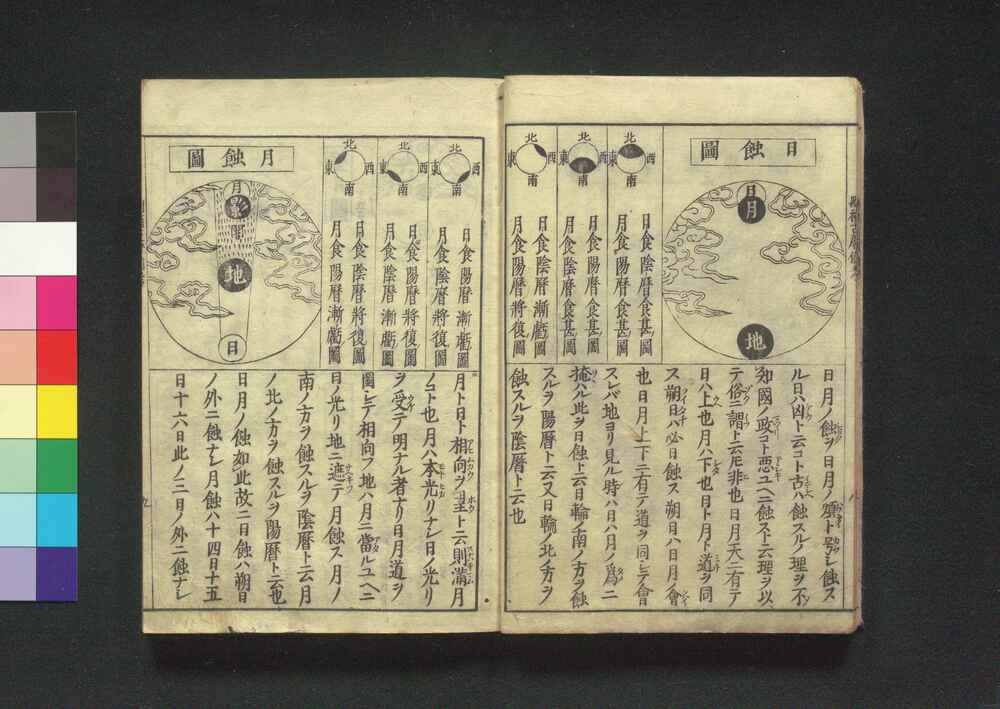 日蝕圖
日
月
地
北
西
南
東
日食陰暦食甚圖
月食陽暦食甚圖
北
西
南
東
日食陽暦食甚圖
月食陰暦食甚圖
北
西
南
東
日食陰暦漸虧圖
月食陽暦將復圖
日月ノ蝕ヲ日月ノ
トシ蝕ス
ル日ハ凶ト云コト古ハ蝕スルノ理ヲ不
知國ノ政コト悪ユヘニ蝕スト云理ヲ以
テ俗ニ謂ト云圧非也日月天ニ有テ
日ハ上也月ハ下也日ト月ト道ヲ同
ス朔日ハ必日蝕ス朔日ハ日月ノ會
也日月上下ニ有テ道ヲ同シテ會
スレバ地ヨリ見ル時ハ日ハ月ノ爲ニ
掩ハル此ヲ日蝕ト云日輪ノ南ノ方ヲ蝕
スルヲ陽暦ト云又日輪ノ北ノ方ヲ
蝕スルヲ陰暦ト云也
北
西
南
東
日食陽暦漸虧圖
月食陰暦將復圖
北
西
南
東
日食陽暦將復圖
月食陰暦漸虧圖
北
西
南
東
日食陰暦將復圖
月食陽暦漸虧圖
月蝕圖
月
影
闇
地
日
月ト日ト相向ヲ望ト云則滿月
ノコト也月ハ本光リナシ日ノ光リ
ヲ受テ明ナル者ナリ日月道ヲ
同シテ相向フ地ハ月ニ當ルユヘニ
日ノ光リ地ニ遮テ月蝕ス月ノ
南ノ方ヲ蝕スルヲ陰暦ト云月
ノ北ノ方ヲ蝕スルヲ陽暦ト云也
日月ノ蝕如此故ニ日蝕ハ朔日
ノ外ニ蝕ナシ月蝕ハ十四日十五
日十六日此ノ三日ノ外ニ蝕ナシ
九